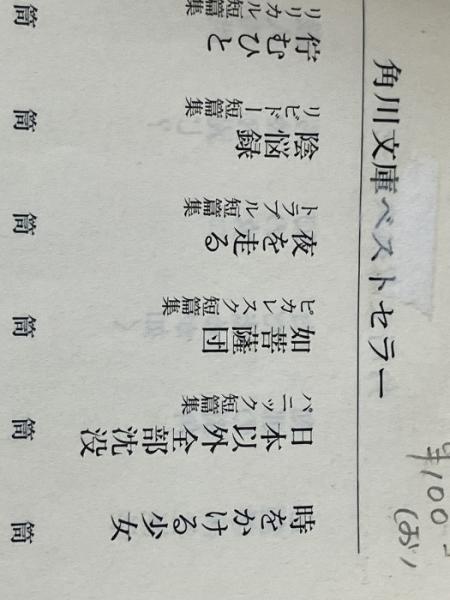 角川文庫ベストセラー
時をかける少女 筒
日本以外全部沈没 筒
パニック短篇集
如菩薩団 筒
ピカレスク短篇集
夜を走る 筒
トラブル短篇集
陰悩録 筒
リビドー短篇集
佇むひと 筒
リリカル短篇集
¥100